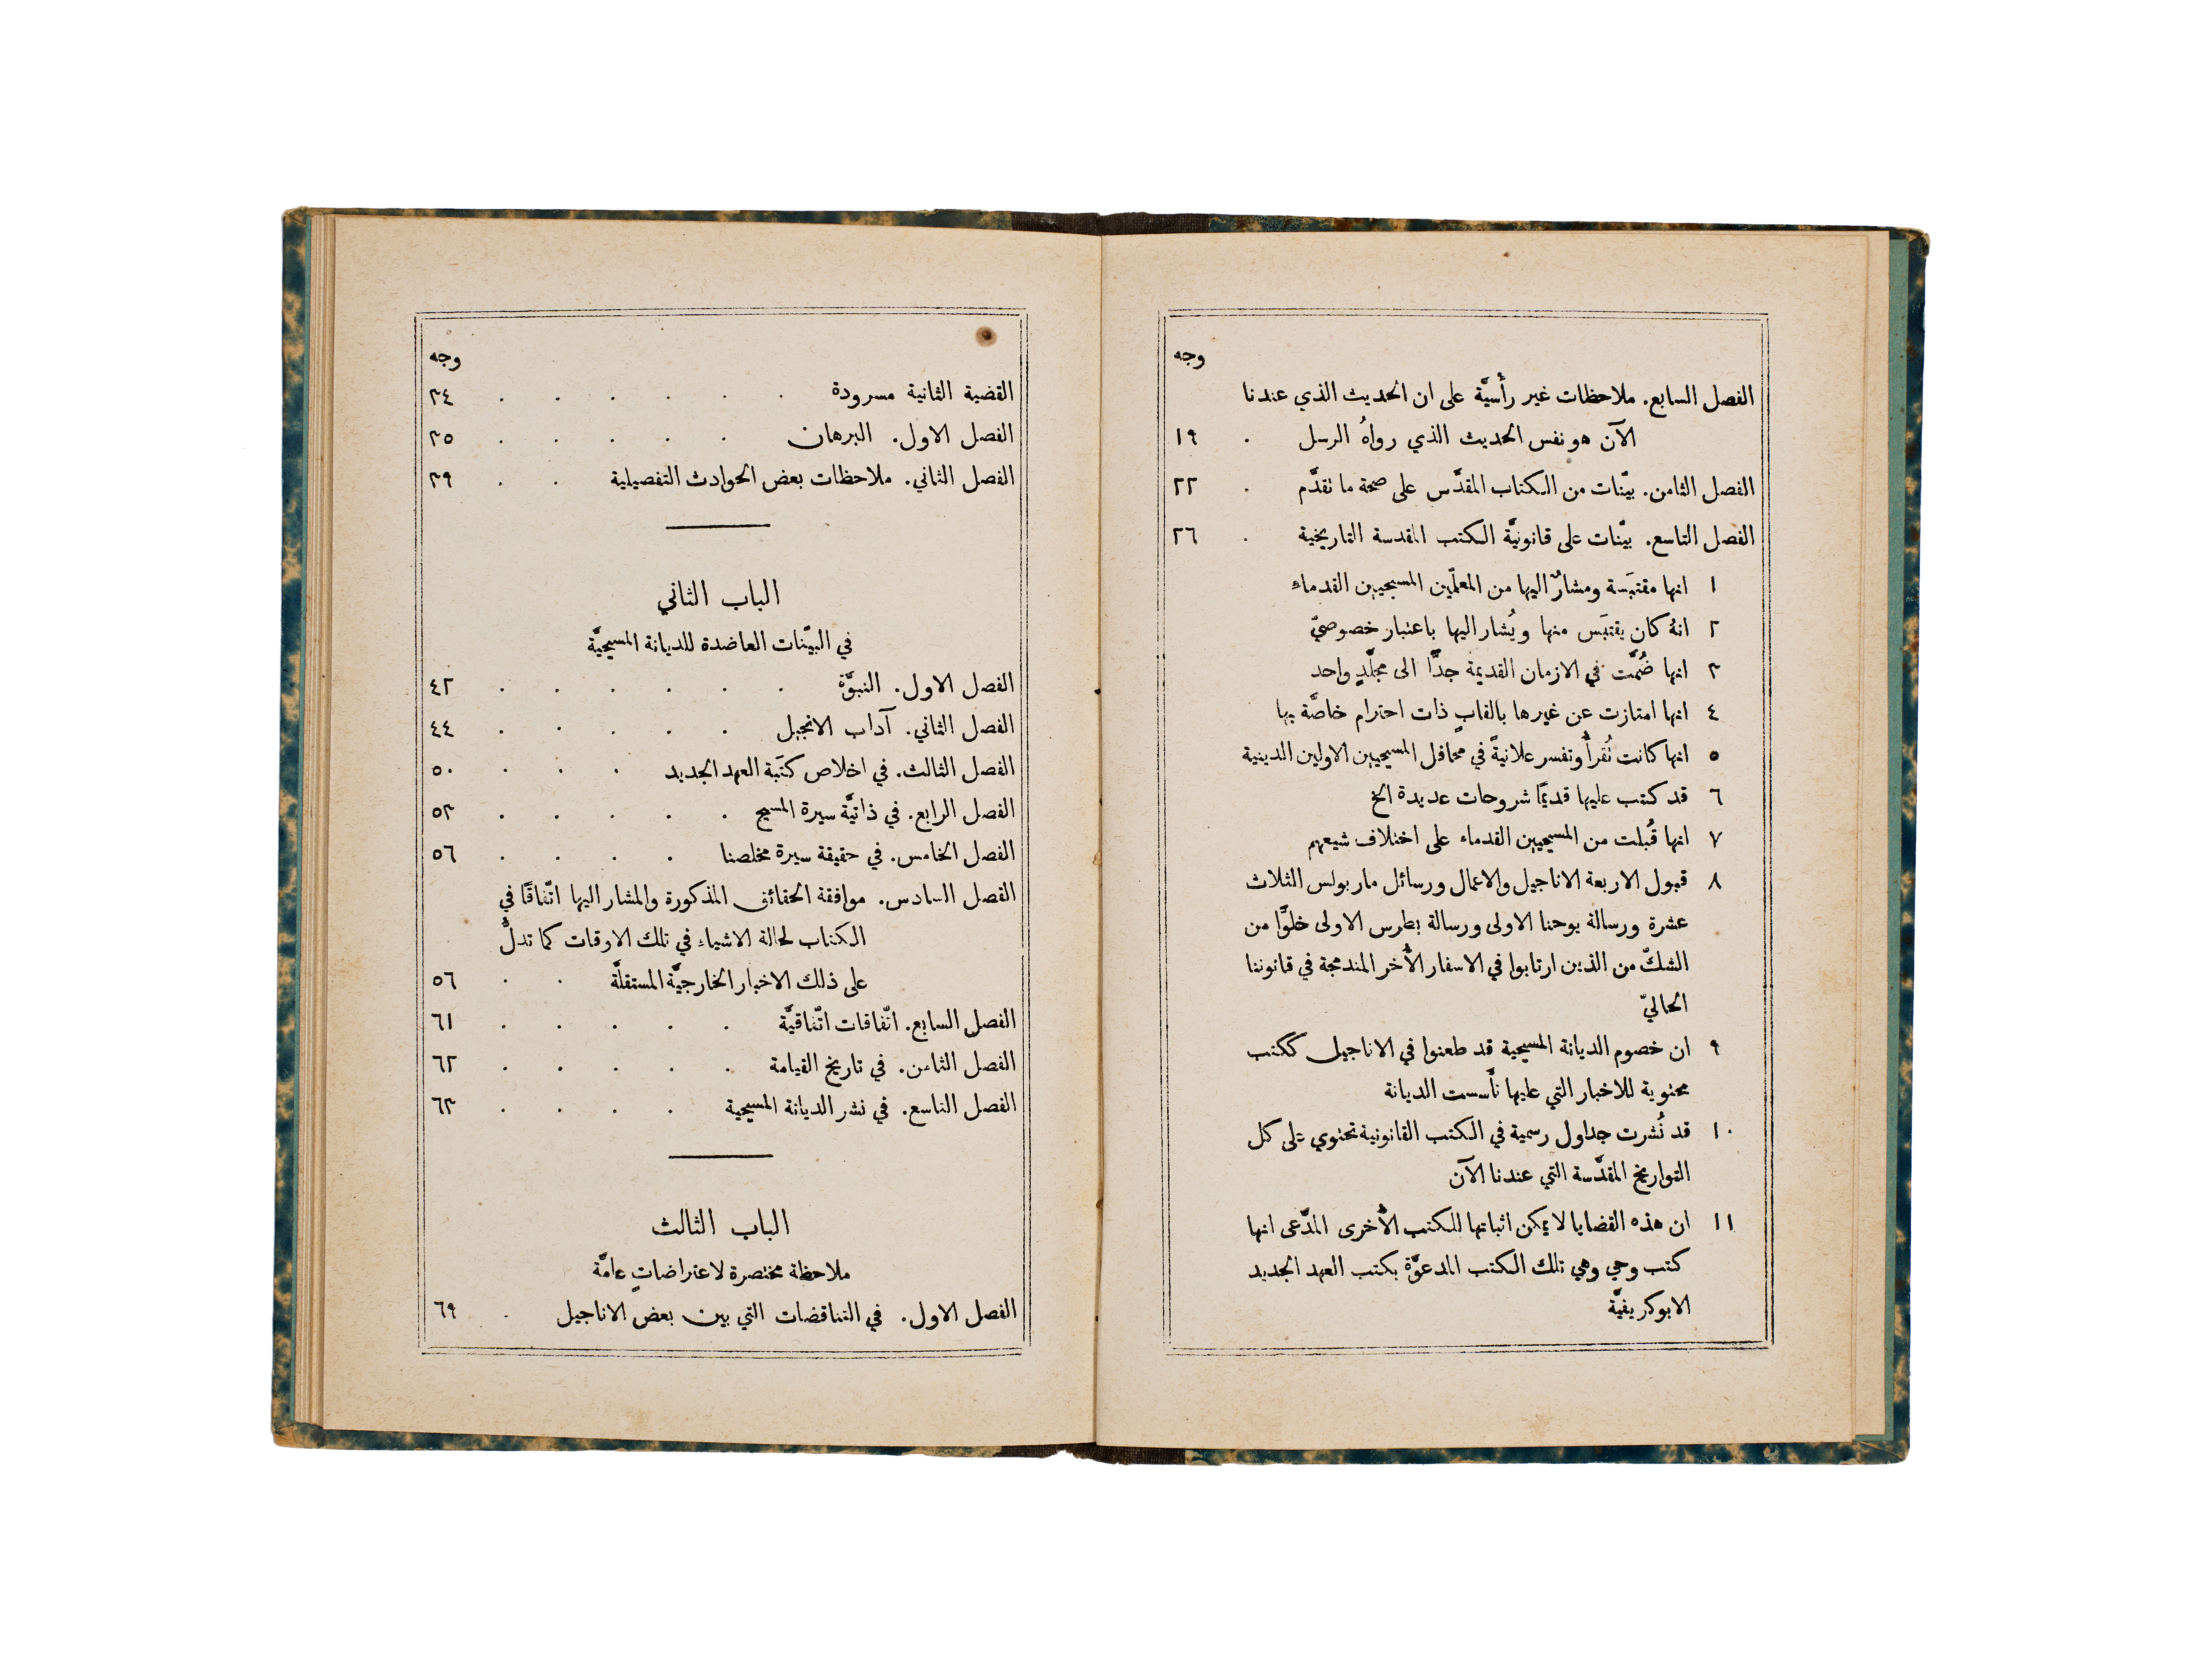 وجه
الفصل السابع. ملاحظات غير رأسيَّة على ان الحديث الذي عندنا
الآن هو نفس الحديث الذي رواهُ الرسل . ١٩
الفصل الثامن. بيّنات من الكتاب المقدَّس على صحة ما نقدَّم . ٢٢
الفصل التاسع. بيّنات على قانونيَّة الكتب المقدسة التاريخية . ٢٦
١ انها مقتبَسة ومشارٌ اليها من المعلّمين المسيحيين القدماء
٢ انهُ كان يقتبَس منها ويُشار اليها باعتبار خصوصيّ
٣ انها ضُمَّت في الازمان القديمة جدًّا الى مجلَّدٍ واحد
٤ انها امتازت عن غيرها بالقابٍ ذات احترام خاصَّة بها
٥ انها كانت نُقرأُ وتفسر علانيةً في محافل المسيحيين الاولين الدينية
٦ قد كتب عليها قديمًا شروحات عديدة الخ
٧ انها قُبلت من المسيحيين القدماء على اختلاف شيعهم
٨ قبول الاربعة الاناجيل والاعمال ورسائل مار بولس الثلاث
عشرة ورسالة يوحنا الاولى ورسالة بطرس الاولى خلوًّا من
الشكّ من الذين ارتابوا في الاسفار الأُخر المندمجة في قانوننا
الحاليّ
٩ ان خصوم الديانة المسيحية قد طعنوا في الاناجيل ككتب
محتوية للاخبار التي عليها تأَسست الديانة
١٠ قد نُشرت جداول رسمية في الكتب القانونية تحتوي على كل
التواريخ المقدَّسة التي عندنا الآن
١١ ان هذه القضايا لا يمكن اثباتها للكتب الأُخرى المدَّعى انها
كتب وحي وهي تلك الكتب المدعوَّة بكتب العهد الجديد
الابوكريفيَّة
وجه
القضية الثانية مسرودة . . . . . . ٣٤
الفصل الاول. البرهان . . . . . ٣٥
الفصل الثاني. ملاحظات بعض الحوادث التفصيلية . . ٣٩
الباب الثاني
في البيّنات العاضدة للديانة المسيحيَّة
الفصل الاول. النبوَّة . . . . . . ٤٢
الفصل الثاني. آداب الانجيل . . . . . ٤٤
الفصل الثالث. في اخلاص كتَبة العهد الجديد . . . ٥٠
الفصل الرابع. في ذاتيَّة سيرة المسيح . . . . . ٥٣
الفصل الخامس. في حقيقة سيرة مخلصنا . . . . ٥٦
الفصل السادس. موافقة الحقائق المذكورة والمشار اليها اتّفاقًا في
الكتاب لحالة الاشياء في تلك الاوقات كما تدلُّ
على ذلك الاخبار الخارجيَّة المستقلَّة . . ٥٦
الفصل السابع. اتّفاقات اتّفاقيَّة . . . . . ٦١
الفصل الثامن. في تاريخ القيامة . . . . . ٦٢
الفصل التاسع. في نشر الديانة المسيحية . . . . ٦٣
الباب الثالث
ملاحظة مختصرة لاعتراضاتٍ عامَّة
الفصل الاول. في التناقضات التي بين بعض الاناجيل . ٦٩